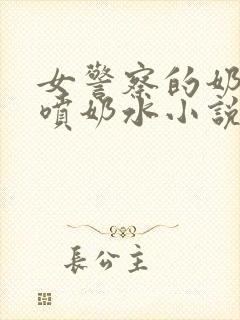 女警察的奶
噴奶水小說
長公主